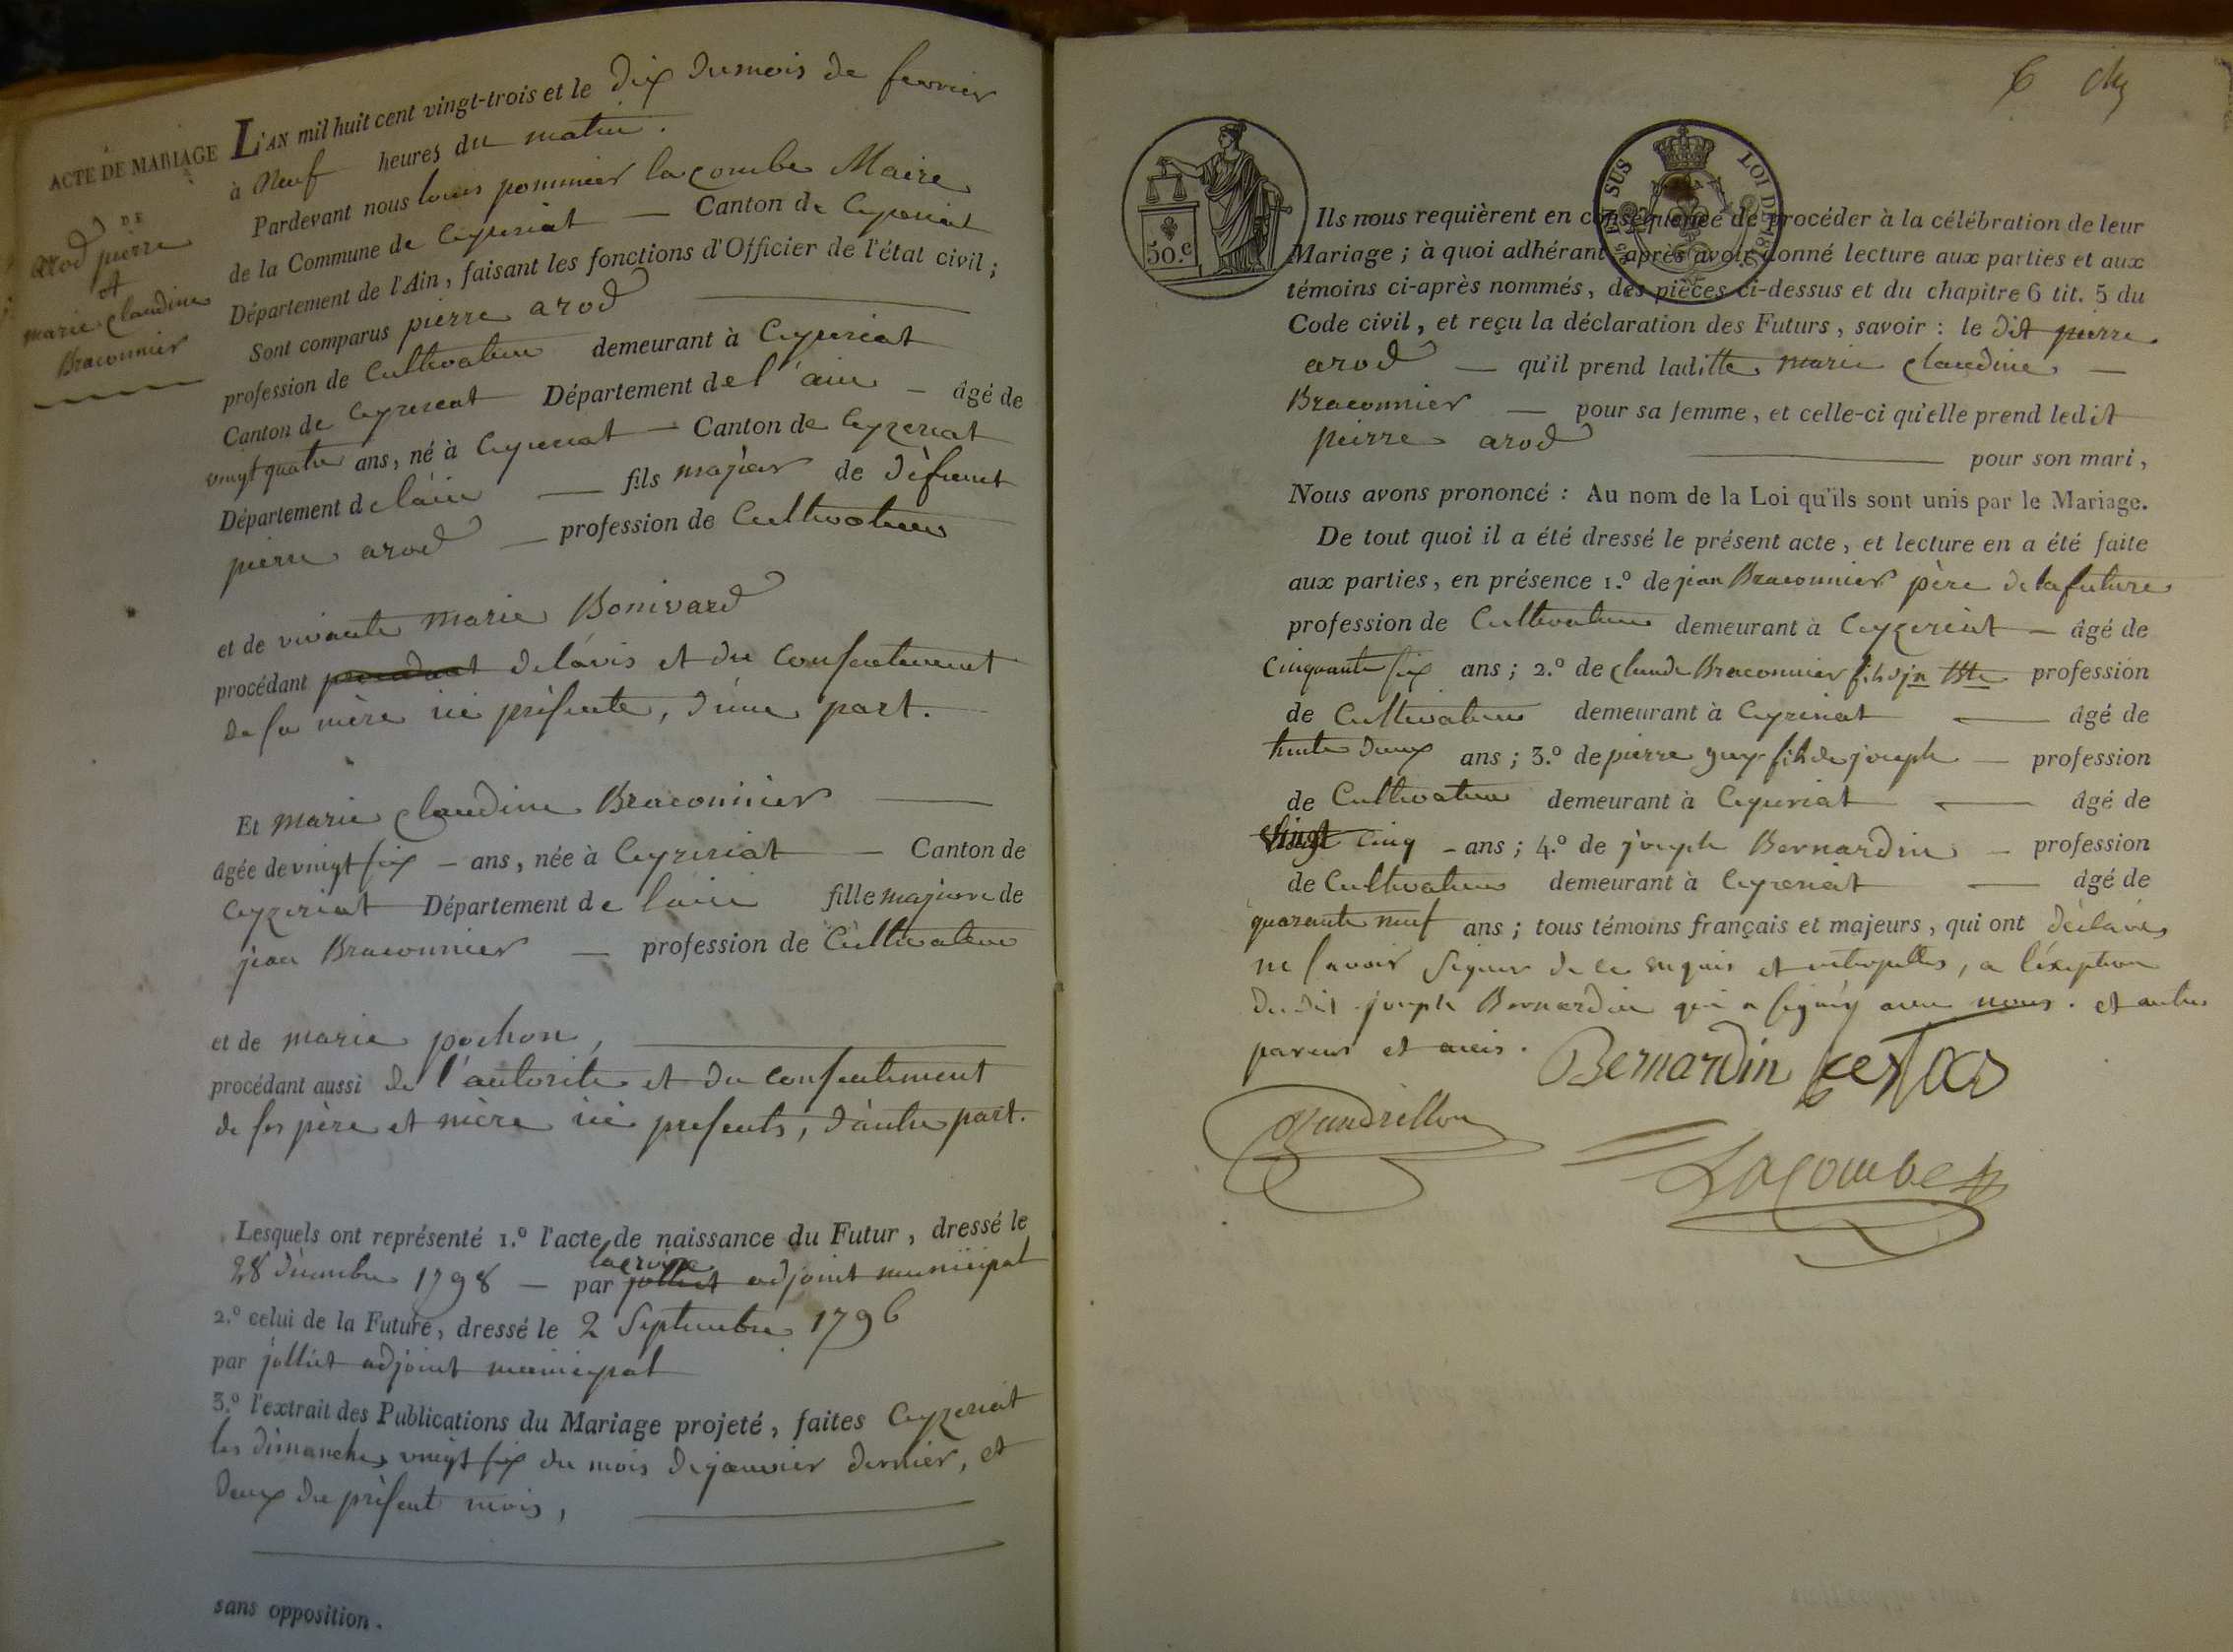 ACTE DE MARIAGE
DE
arod pierre
et
marie claudine
Braconnier
L'AN mil huit cent vingt-trois et le dix du mois de fevrier
à Neuf heures du matin.
Pardevant nous louis pommier lacombe Maire
de la Commune de Ceyzeriat — Canton de Ceyzeriat
Département de l'Ain, faisant les fonctions d'Officier de l'état civil ;
Sont comparus pierre arod
profession de Cultivateur demeurant à Ceyzeriat
Canton de Ceyzereat Département de l'ain — âgé de
vingt quatre ans, né à Ceyzeriat — Canton de Ceyzeriat
Département de l'ain — fils majeur de défunt
pierre arod — profession de Cultivateur
et de vivante Marie Bonivard
procédant procedant de l'avis et du consentement
de sa mère ici présente, d'une part.
Et Marie Claudine Braconnier
âgée de vingt six — ans, née à Ceyzeriat — Canton de
Ceyzeriat Département de l'ain fille majeure de
jean Braconnier — profession de Cultivateur
et de marie pochon,
procédant aussi de l'autorite et du consentement
de ses père et mère ici presents, d'autre part.
Lesquels ont représenté 1.º l'acte de naissance du Futur, dressé le
lacroix
28 décembre 1798 — par jolliet adjoint municipal
2.º celui de la Future, dressé le 2 Septembre 1796
par jolliet adjoint municipal
3.º l'extrait des Publications du Mariage projeté, faites Ceyzeriat
les dimanches vingt six du mois de janvier dernier, et
deux du présent mois,
sans opposition.
6
50.c
SUS
LOI DE 1816
Ils nous requièrent en conséquence de procéder à la célébration de leur
Mariage ; à quoi adhérant, après avoir donné lecture aux parties et aux
témoins ci-après nommés, des pièces ci-dessus et du chapitre 6 tit. 5 du
Code civil, et reçu la déclaration des Futurs, savoir : le dit pierre
arod — qu'il prend laditte marie claudine —
Braconnier — pour sa femme, et celle-ci qu'elle prend ledit
pierre arod pour son mari,
Nous avons prononcé : Au nom de la Loi qu'ils sont unis par le Mariage.
De tout quoi il a été dressé le présent acte, et lecture en a été faite
aux parties, en présence 1.º de jean Braconnier père de la future
profession de Cultivateur demeurant à Ceyzeriat — âgé de
cinquante six ans ; 2.º de claude Braconnier fils jn Bte profession
de Cultivateur demeurant à Ceyzeriat — âgé de
trente deux ans ; 3.º de pierre guy fils de joseph — profession
de Cultivateur demeurant à Ceyzeriat — âgé de
vingt cinq — ans ; 4.º de joseph Bernardin — profession
de Cultivateur demeurant à Ceyzeriat — âgé de
quarante neuf ans ; tous témoins français et majeurs, qui ont déclaré
ne savoir signer de ce enquis et interpellés, a l'exception
du dit joseph Bernardin qui a signé avec nous. et autres
parens et amis.
Bernardin
Gandrillon
Lacombe